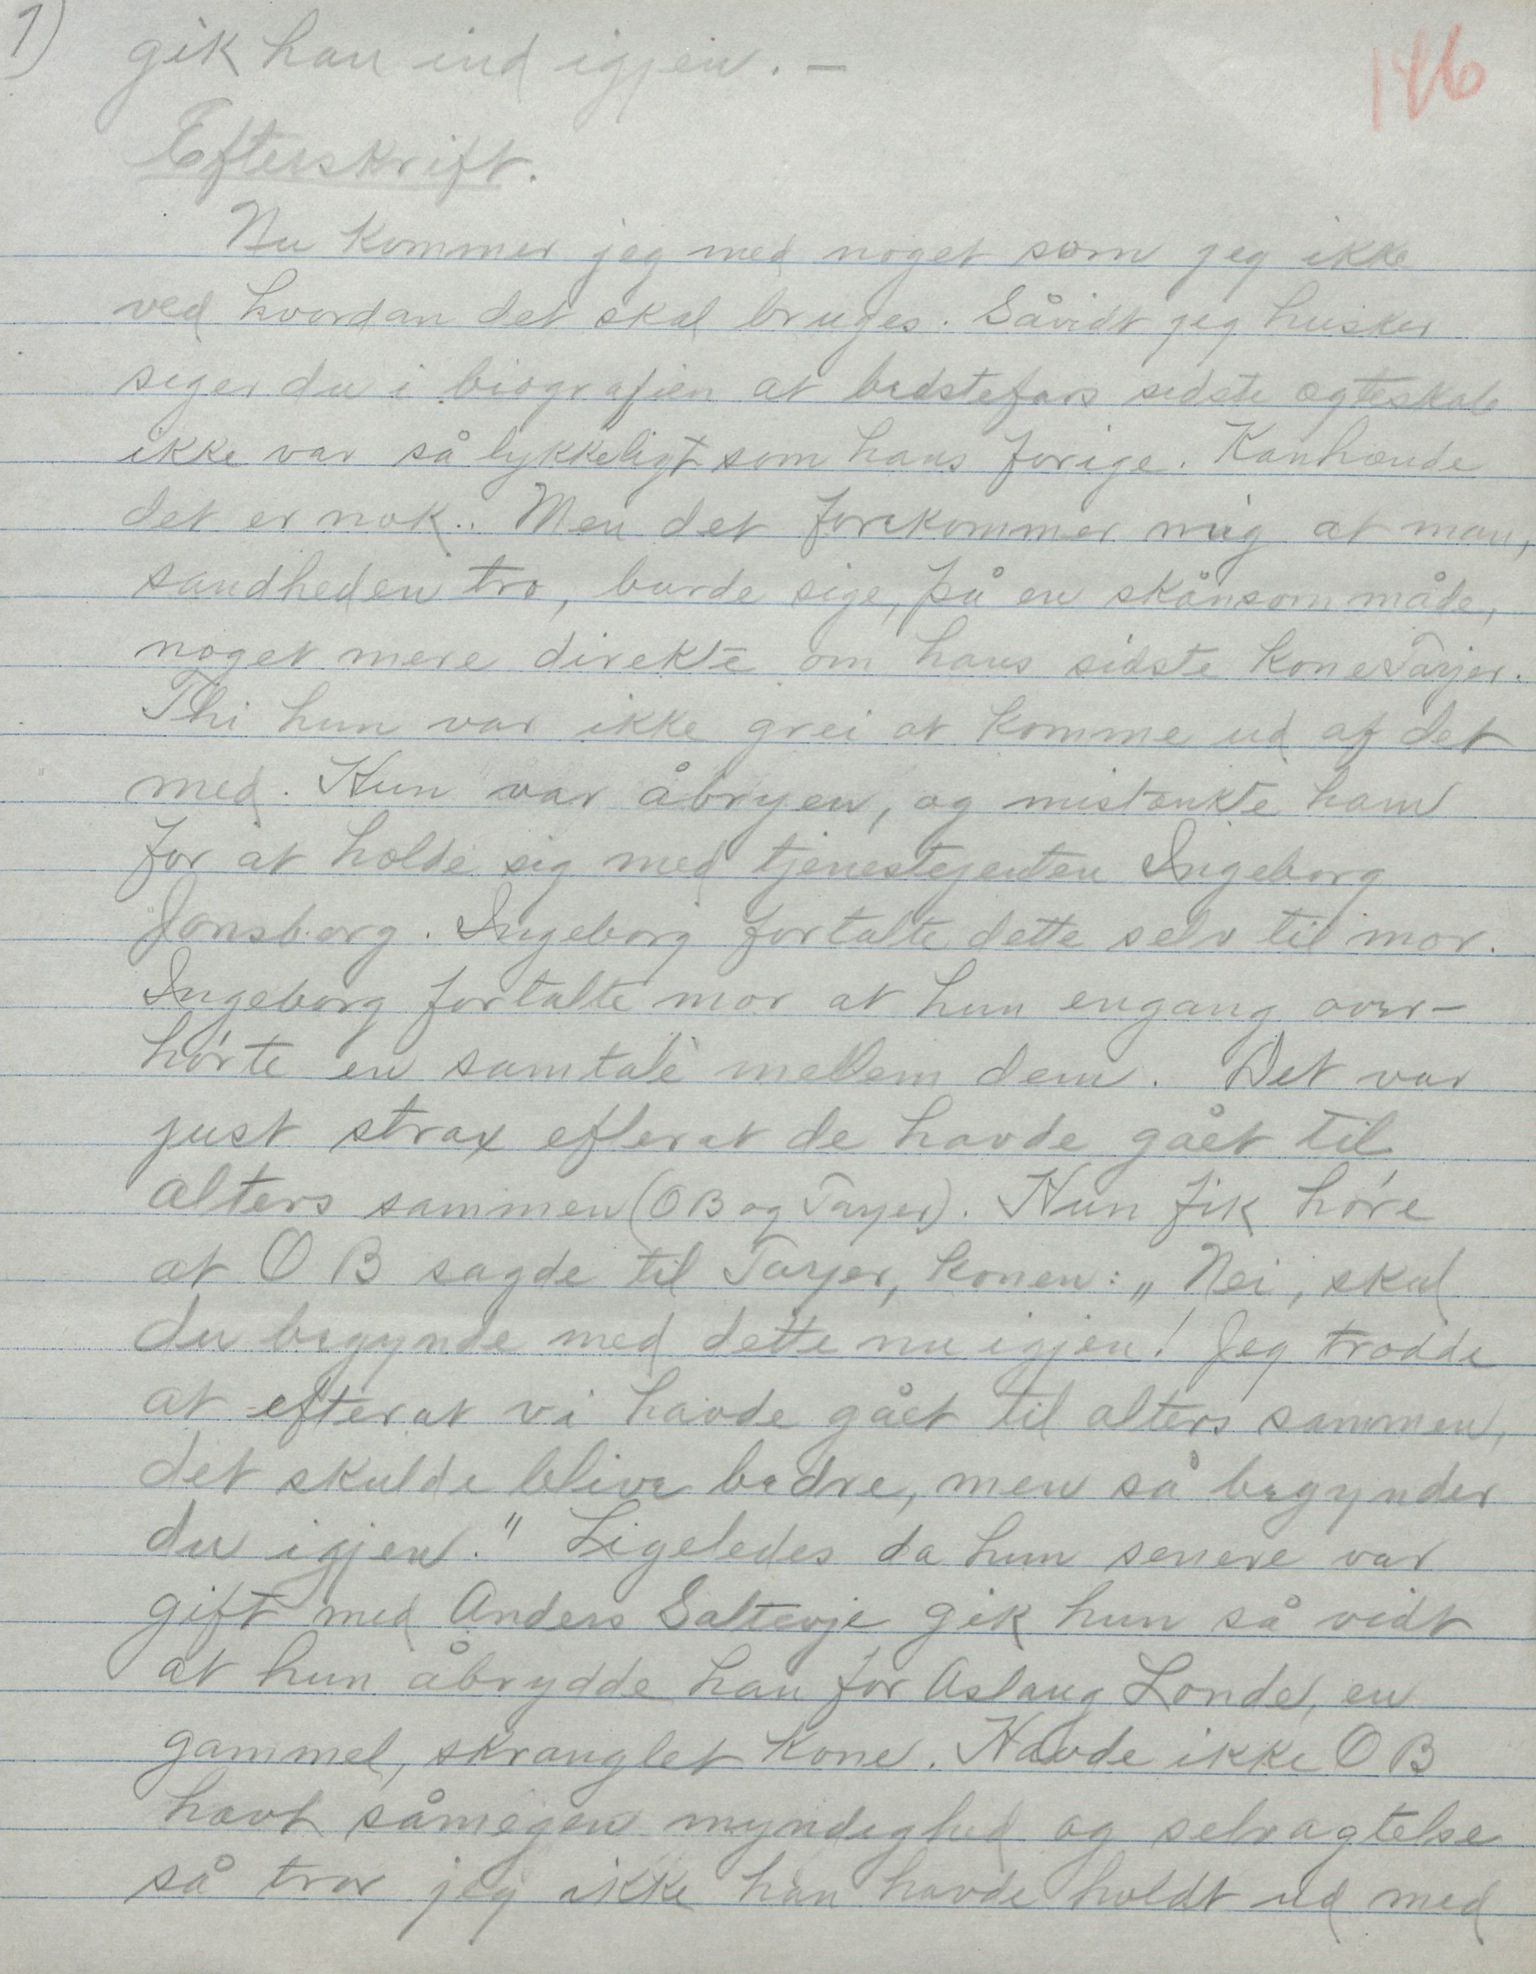 7)
186
gik han ind igjen. —
Efterskrift.
Nu kommer jeg med noget som jeg ikke
ved hvordan det skal bruges. Såvidt jeg husker
siger du i biografien at bedstefars sidste ægteskab
ikke var så lykkeligt som hans forige. Kanhænde
det er nok. Men det forekommer mig at man,
sandheden tro, burde sige, på en skånsom måde,
noget mere direkte om hans sidste kone Tarjer.
Thi hun var ikke grei at komme ud af det
med. Hun var åbryen, og mistænkte ham
for at holde sig med tjenestejenten Ingeborg
Jonsborg. Ingeborg fortalte dette selv til mor.
Ingeborg fortalte mor at hun engang over-
hørte en samtale mellem dem. Det var
just strax efterat de havde gået til
alters sammen (OB og Tarjer). Hun fik høre
at O B sagde til Tarjer, konen: „Nei, skal
du begynde med dette nu igjen! Jeg trodde
at efterat vi havde gået til alters sammen,
det skulde blive bedre, men så begynder
du igjen." Ligeledes da hun senere var
gift med Anders Saltevje gik hun så vidt
at hun åbrydde han for Aslaug Londe, en
gammel, skranglet kone. Havde ikke O B
havt såmegen myndighed og selvagtelse
så tror jeg ikke han havde holdt ud med